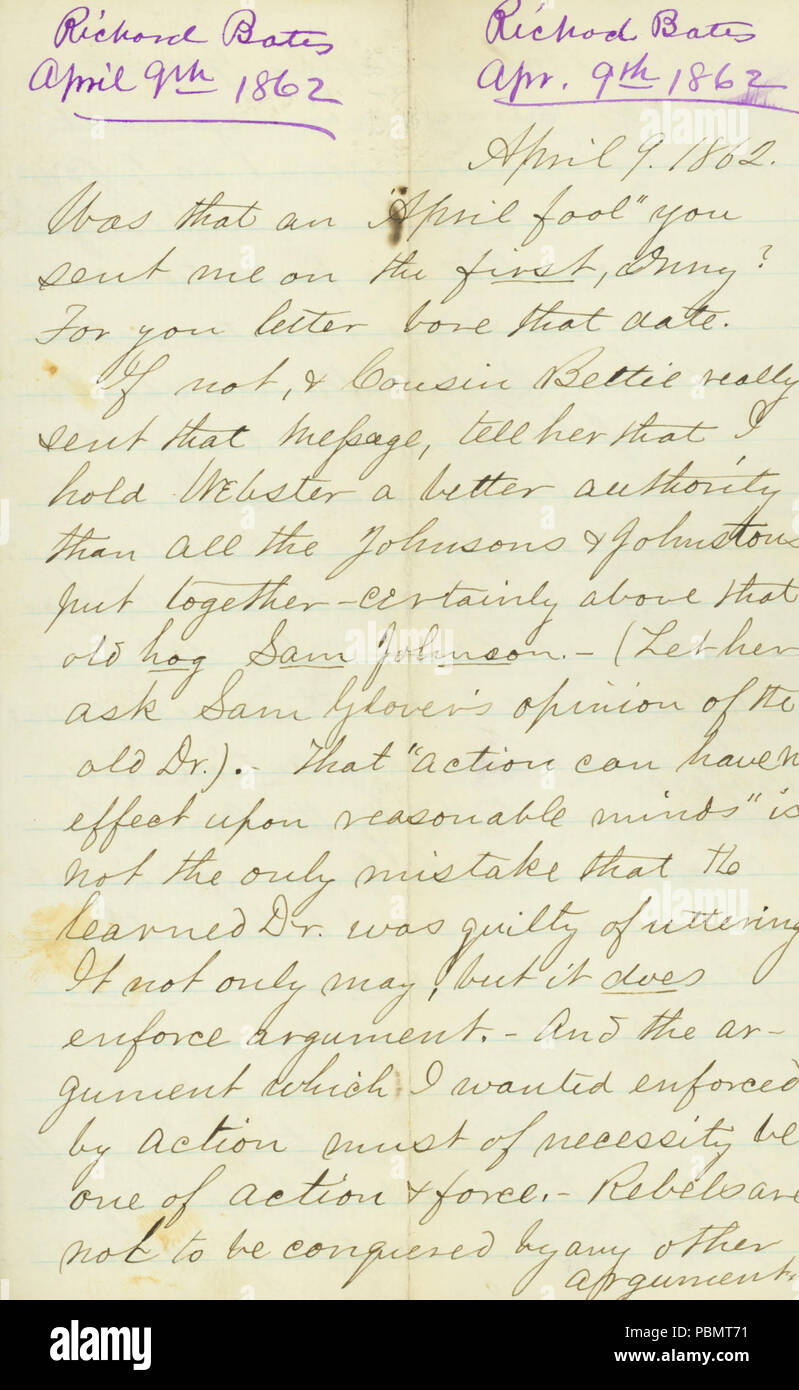 Richard Bates
April 9th 1862
Richad Bates
Apr. 9th 1862
April 9. 1862.
Was that an "April fool" you
sent me on the first, ?
For you letter bore that date.
If not, & Cousin Bettie really
sent that Message, tell her that I
hold Webster a better authority
than all the Johnsons & Johnstons
put together – certainly above that
old hog Sam Johnson. – (Let her
ask Sam Glover's opinion of the
old Dr.). – That "action can have n
effect upon reasonable minds" is
not the only mistake that the
learned Dr. was guilty of uttering
It not only may, but it does
enforce argument. – And the ar-
gument which I wanted enforced
by action must of necessity be
one of action & force. – Rebels are
not to be conquered by any other
argument.
alamy
alamy
alamy
alamy
alamy
alamy
Image ID: PBMT71
www.alamy.com